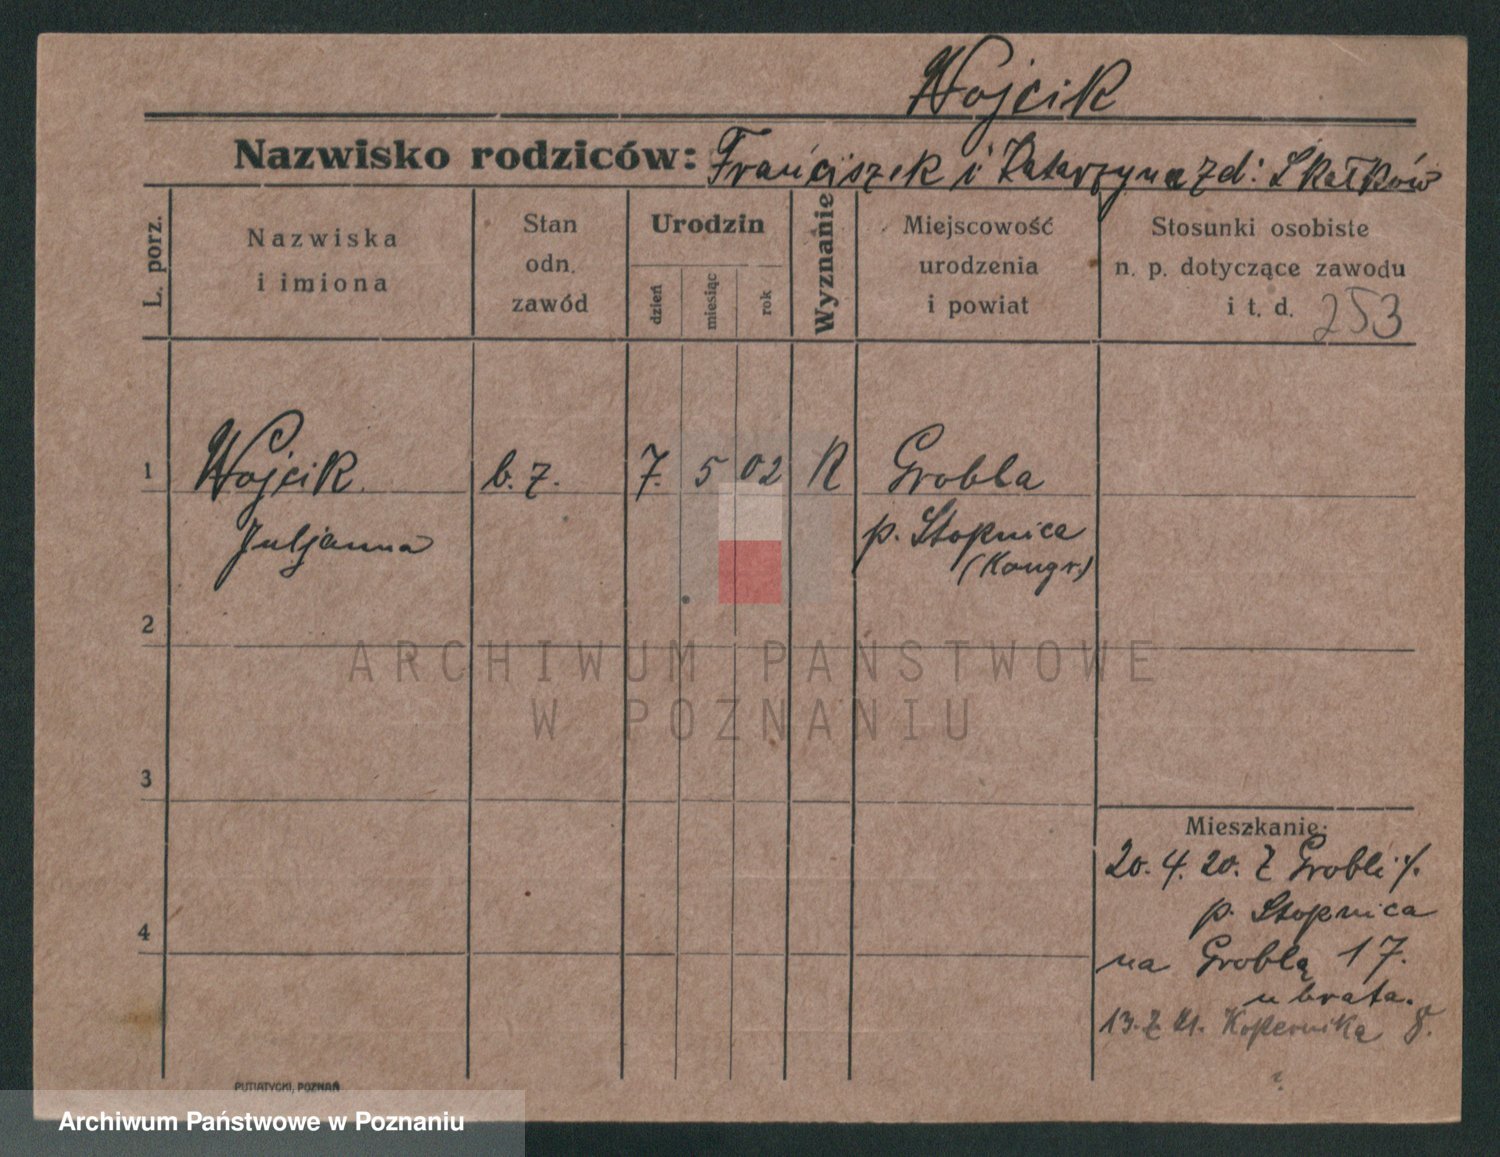 Wojcik
Nazwisko rodziców: Franciszek i Katarzyna zd: Skałków
L. porz.
Nazwiska
i imiona
Stan
odn.
zawód
Urodzin
dzień
miesiąc
rok
Wyznanie
Miejscowość
urodzenia
i powiat
Stosunki osobiste
n. p. dotyczące zawodu
i t. d. 253
1 Wojcik b. z. 7. 5 02 R Grobla
Juljanna p. Stopnica
(Kongr.)
2
ARCHIWUM PAŃSTWOWE
W POZNANIU
3
Mieszkanie:
20. 4. 20. Z Grobli
p. Stopnica
4
na Groblą 17.
u brata.
13. 7. 21. Kopernika 8.
PUTIATYCKI, POZNAŃ
Archiwum Państwowe w Poznaniu